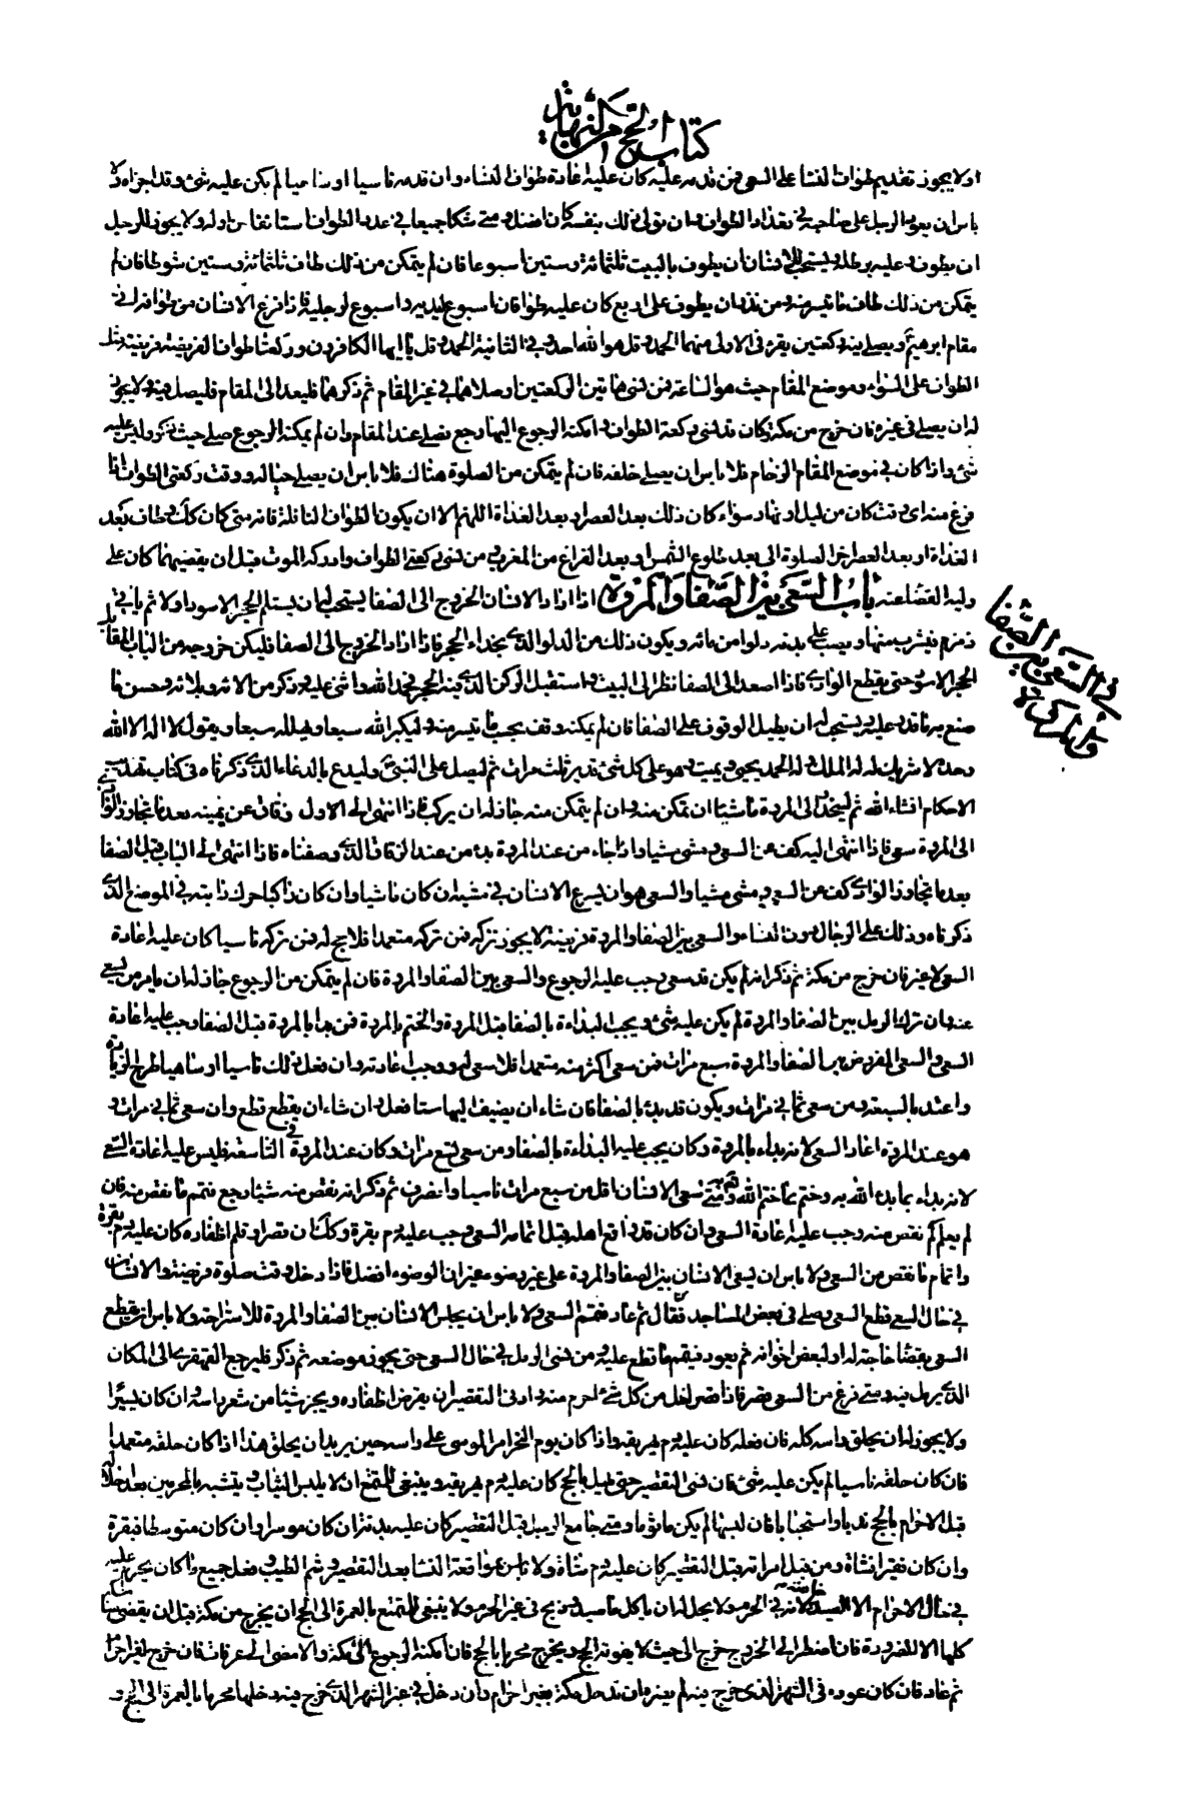 كتاب الحج من النهاية
او لا يجوز تقديم طواف النساء على السعي فمن قدمه عليه كان عليه اعادة طواف النساء وان قدمه ناسيا او ساهيا لم يكن عليه شئ وقد اجزاه ولا
باس ان يعول الرجل على صاحبه في تعداد الطواف وان تولى ذلك بنفسه كان افضل ومتى شكا جميعا في عدد الطواف استانفا من اوله ولا يجوز للرجل
ان يطوف وعليه برطله ويستحب للانسان ان يطوف بالبيت ثلثمائة وستين اسبوعا فان لم يتمكن من ذلك طاف ثلثمائة وستين شوطا فان لم
يتمكن من ذلك طاف ما تيسر منه ومن نذر ان يطوف على اربع كان عليه طوافان اسبوع ليديه واسبوع لرجليه فاذا فرغ الانسان من طوافه اتى
مقام ابرهيم ويصلي فيه ركعتين يقرء في الاولى منهما الحمد وقل هو الله احد وفي الثانية الحمد وقل يا ايها الكافرون وركعتا طواف الفريضة فريضة مثل
الطواف على السواء وموضع المقام حيث هو الساعة فمن نسى هاتين الركعتين او صلاهما في غير المقام ثم ذكرهما فليعد الى المقام فليصل فيه ولا يجوز
له ان يصلي في غيره فان خرج من مكة وكان قد نسي ركعتي الطواف وامكنه الرجوع اليها رجع فصلى عند المقام وان لم يمكنه الرجوع صلى حيث ذكر وليس عليه
شئ واذا كان في موضع المقام الزحام فلا باس ان يصلي خلفه فان لم يتمكن من الصلوة هناك فلا باس ان يصلي حياله ووقت ركعتي الطواف اذا
فرغ منه اي وقت كان من ليل او نهار سواء كان ذلك بعد العصر او بعد الغداة اللهم الا ان يكون الطواف النافلة فانه متى كان كذلك وطاف بعد
الغداة او بعد العصر اخر الصلوة الى بعد طلوع الشمس او بعد الفراغ من المغرب ومن نسي ركعتي الطواف وادركه الموت قبل ان يقضيهما كان على
وليه القضاء عنه باب السعي بين الصفا والمروة اذا اراد الانسان الخروج الى الصفا يستحب له ان يستلم الحجر الاسود اولا ثم ياتي
زمزم فيشرب منها ويصب على بدنه دلوا من مائه ويكون ذلك من الدلو الذي بحذاء الحجر فاذا اراد الخروج الى الصفا فليكن خروجه من الباب المقابل
الحجر الاسود حتى يقطع الوادي فاذا اصعد الى الصفا نظر الى البيت واستقبل الركن الذي فيه الحجر فحمد الله واثنى عليه وذكر من الائه وبلائه وحسن ما
صنع به ما قدر عليه ويستحب له ان يطيل الوقوف على الصفا فان لم يمكنه وقف بحسب ما تيسر منه وليكبر الله سبعا ويهلله سبعا ويقول لا اله الا الله
وحده لا شريك له له الملك وله الحمد يحيي ويميت وهو على كل شئ قدير ثلث مرات ثم ليصل على النبي وليدع بالدعاء الذي ذكرناه في كتاب تهذيب
الاحكام انشاء الله ثم لينحدر الى المروة ماشيا ان تمكن منه وان لم يتمكن منه جاز له ان يركب فاذا انتهى الى الاول وقاق عن يمينه بعد ما تجاوز الوادي
الى المروة سعى فاذا انتهى اليه كف عن السعي ومشى مشيا واذا جاء من عند المروة بدء من عند الزقاق الذي وصفناه فاذا انتهى الى الباب قبل الصفا
بعد ما تجاوز الوادي كف عن السعي ومشى مشيا والسعي هو ان يسرع الانسان في مشيه ان كان ماشيا وان كان راكبا حرك دابته في الموضع الذي
ذكرناه وذلك على الرجال دون النساء والسعي بين الصفا والمروة فريضة لا يجوز تركه فمن تركه متعمدا فلا حج له فمن تركه ناسيا كان عليه اعادة
السعي لا غير فان خرج من مكة ثم ذكر انه لم يكن قد سعى وجب عليه الرجوع والسعي بين الصفا والمروة فان لم يتمكن من الرجوع جاز له ان يامر من يسعى
عنه وان ترك الرمل بين الصفا والمروة لم يكن عليه شئ ويجب البداءة بالصفا قبل المروة والختم بالمروة فمن بدا بالمروة قبل الصفا وجب عليه اعادة
السعي والسعي المفروض بين الصفا والمروة سبع مرات فمن سعى اكثر منه متعمدا فلا سعى له ووجب اعادته وان فعل ذلك ناسيا او ساهيا طرح الزيادة
واعتد بالسبعة ومن سعى ثماني مرات ويكون قد بدء بالصفا فان شاء ان يضيف اليها ستا فعل وان شاء ان يقطع قطع وان سعى ثماني مرات و
هو عند المروة اعاد السعي لانه بداء بالمروة وكان يجب عليه البداءة بالصفا ومن سعى تسع مرات وكان عند المروة في التاسعة فليس عليه اعادة السعي
لانه بداء بما بدء الله به وختم بما ختم الله به ومتى سعى الانسان اقل من سبع مرات ناسيا وانصرف ثم ذكر انه نقص منه شيئا رجع فتمم ما نقص منه فان
لم يعلم كم نقص منه وجب عليه اعادة السعي وان كان قد واقع اهله قبل اتمامه السعي وجب عليه دم بقرة وكذلك ان قصر او قلم اظفاره كان عليه دم بقرة
واتمام ما نقص من السعي ولا باس ان يسعى الانسان بين الصفا والمروة على غير وضوء غير ان الوضوء افضل فاذا دخل وقت صلوة فريضة والانسان
في حال السعي قطع السعي وصلى في بعض المساجد ثم عاد فتمم السعي ولا باس ان يجلس الانسان بين الصفا والمروة للاستراحة ولا باس ان يقطع
السعي بقضاء حاجة له او لبعض اخوانه ثم يعود فيتمم ما قطع عليه ومن نسى الرمل في حال السعي حتى يجوز موضعه ثم ذكر فليرجع القهقرى الى المكان
الذي يرمل فيه ومتى فرغ من السعي قصر فاذا قصر احل من كل شئ احرم منه وادنى التقصير ان يقرض اظفاره ويجز شيئا من شعر راسه وان كان يسيرا
ولا يجوز له ان يحلق راسه كله فان فعله كان عليه دم يهريقه واذا كان يوم النحر امر الموسى على راسه حين يريد ان يحلق هذا اذا كان حلقه متعمدا
فان كان حلقه ناسيا لم يكن عليه شئ فان نسى التقصير حتى يهل بالحج كان عليه دم يهريقه وينبغي للمتمتع ان لا يلبس الثياب ويتشبه بالمحرمين بعد احلاله
قبل الاحرام بالحج ندبا واستحبابا فان لبسها لم يكن ماثوما ومتى جامع الرجل قبل التقصير كان عليه بدنة ان كان موسرا وان كان متوسطا فبقرة
وان كان فقيرا فشاة ومن قبل امراته قبل التقصير كان عليه دم شاة ولا باس بمواقعة النساء بعد التقصير وشم الطيب وفعل جميع ما كان يحرم عليه
في حال الاحرام الا الصيد خاصة لانه في الحرم ولا يحل له ان ياكل ما صيد وذبح في غير الحرم ولا ينبغي للمتمتع بالعمرة الى الحج ان يخرج من مكة قبل ان يقضى مناسكه
كلها الا للضرورة فان اضطر الى الخروج خرج الى حيث لا يفوته الحج ويخرج محرما بالحج فان امكنه الرجوع الى مكة والا مضى الى عرفات فان خرج بغير احرام
ثم عاد فان كان عوده في الشهر الذي خرج فيه لم يضره ان يدخل مكة بغير احرام وان دخل في غير الشهر الذي خرج فيه دخلها محرما بالعمرة الى الحج و
في السعي بين الصفا
والمروة